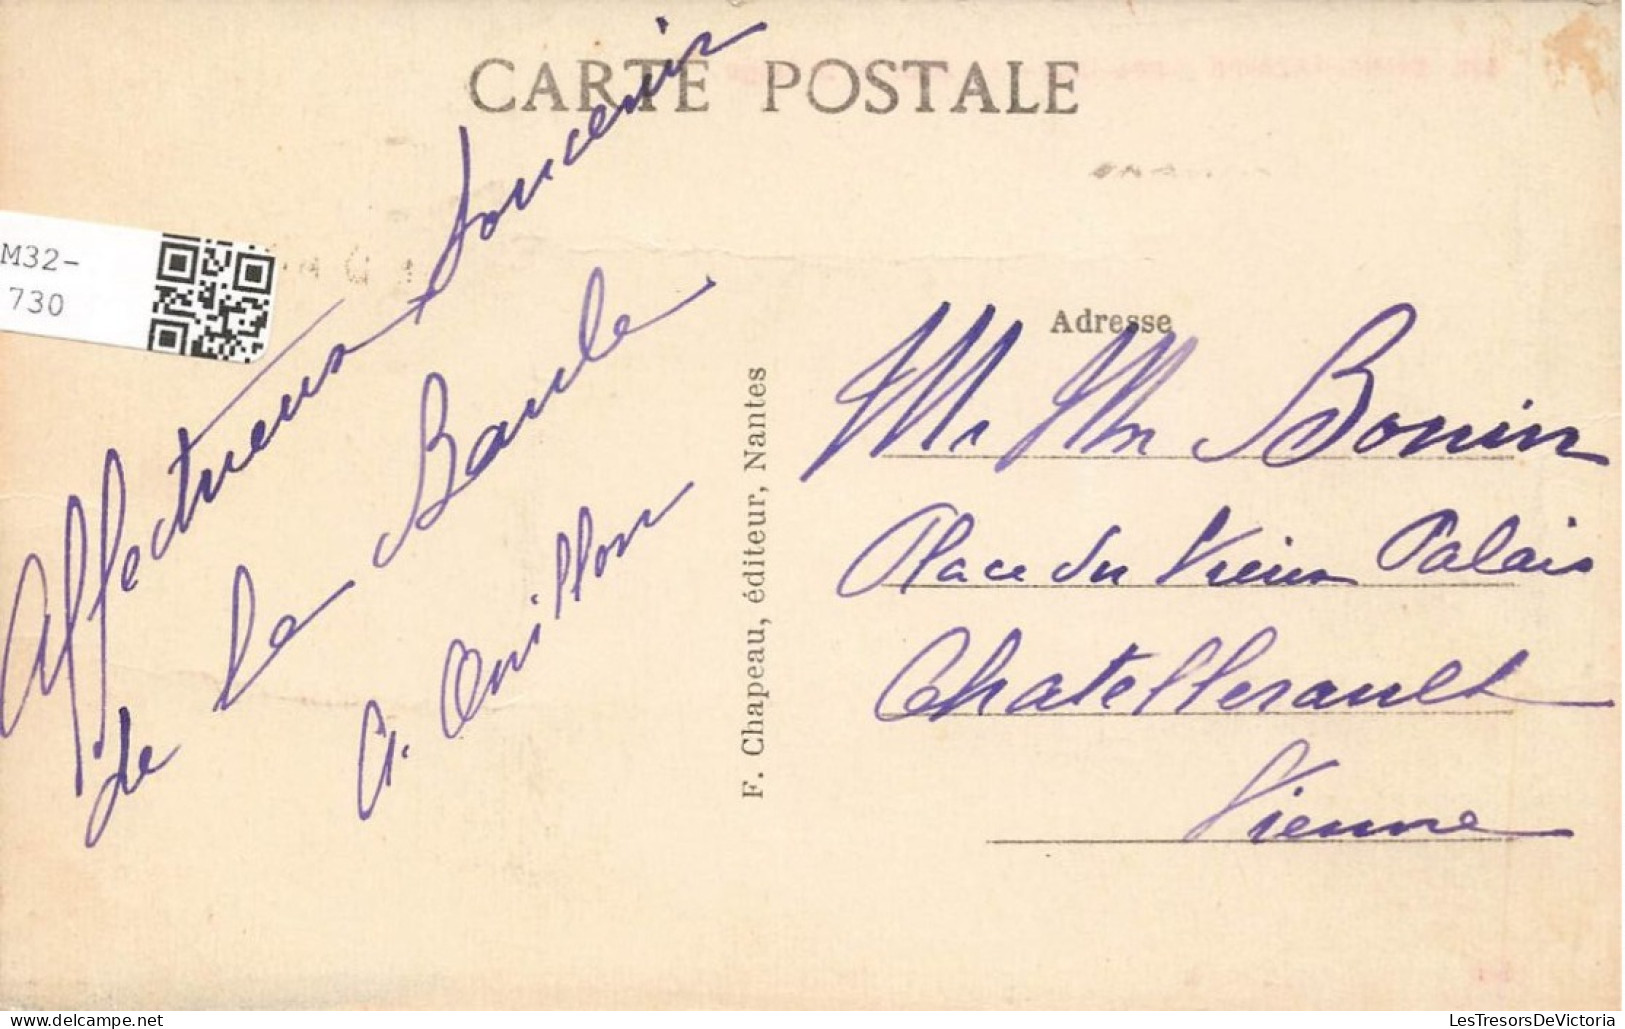 CARTE POSTALE
M32-
730
Affectueux souvenir
de la Baule
A. Ouillon
F. Chapeau, éditeur, Nantes
Adresse
Mr Mm Bonin
Place du Vieux Palais
Chatellerault
Vienne
LesTresorsDeVictoria